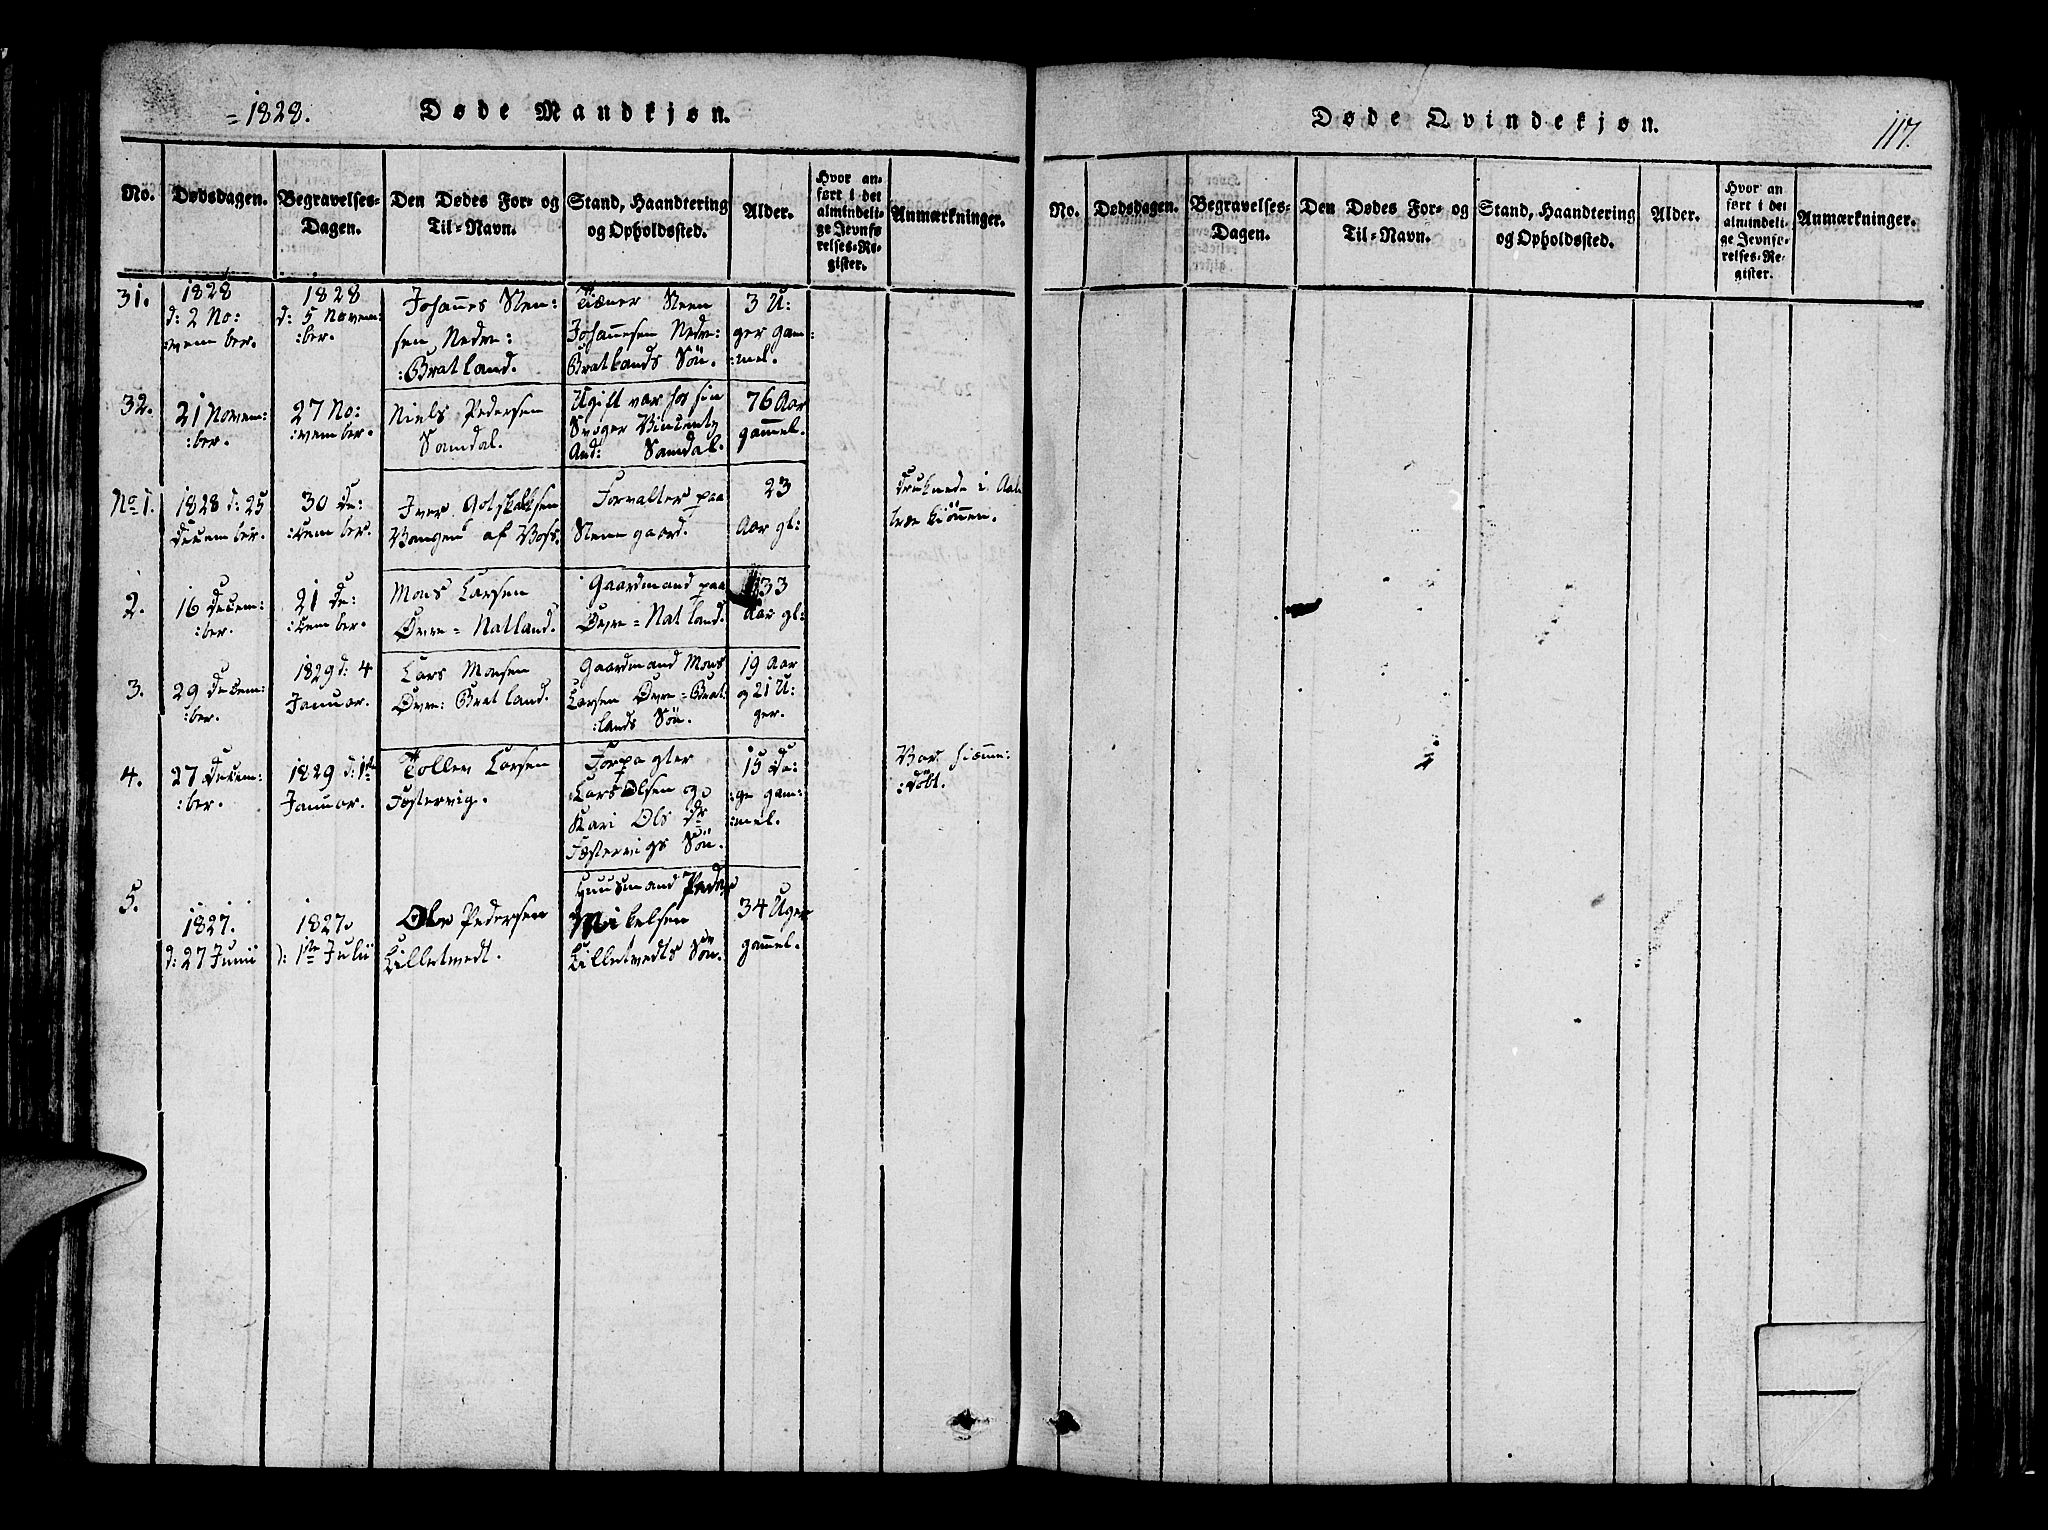 = 1828.
Døde Mandkjøn.
No.
Dødsdagen.
Begravelses-
Dagen.
Den Dødes For- og
Til-Navn.
Stand, Haandtering
og Opholdssted.
Alder.
Hvor an-
ført i det
almindeli-
ge Jevnfø-
relses-Re-
gister.
Anmærkninger.
31.
1828
d: 2 No:
:vember.
1828
d: 5 Novem:
:ber.
Johanes Sten:
sen, Nedre:
:Bratland.
Tiæner Steen
Johannesen Nedre:
Bratlands Søn.
3 U:
ger gam:
:mel.
32.
21 Novem:
:ber.
27 No:
:vember.
Niels Pedersen
Samdal.
Ugift var hos sin
Svoger
And: Samdal.
76 Aar
gammel.
No 1.
1828 d: 25
December.
30 De:
:cember.
Iver Gotskalksen
Vangen af Voss.
Forvalter paa
Steen gaard.
23
Aar gl:
druknede i
2.
16 Decem:
:ber.
21 De:
:cember.
Mons Larsen
Øvre = Natland.
Gaardmand paa
Øvre = Natland.
33
Aar gl:
3.
29 Decem:
:ber.
1829 d: 4
Januar.
Lars Monsen
Øvre: Bratland.
Gaardmand Mons
Larsen Øvre = Brat
:lands Søn.
19 Aar
og 21 U:
ger.
4.
27 Decem:
:ber.
1829 d: 1ste
Januar.
Tollev Larsen
Fostervig.
Forpagter
Lars Olsen og
Kari Ols Dr
Fostervigs Søn.
15 Da:
:ge gam:
:mel.
Var hiemme:
:døbt.
5.
1827.
d: 27 Junii
1827
d: 1ste Julii
Ole Pedersen
Lilletvedt.
Huusmand Peder
Mikelsen
Lilletvedts Søn.
34 Uger
gammel.
Døde Qvindekjøn.
117.
No.
Dødsdagen.
Begravelses-
Dagen.
Den Dødes For- og
Til-Navn.
Stand, Haandtering
og Opholdssted.
Alder.
Hvor an
ført i det
almindeli-
ge Jevnfø-
relses-Re-
gister.
Anmærkninger.